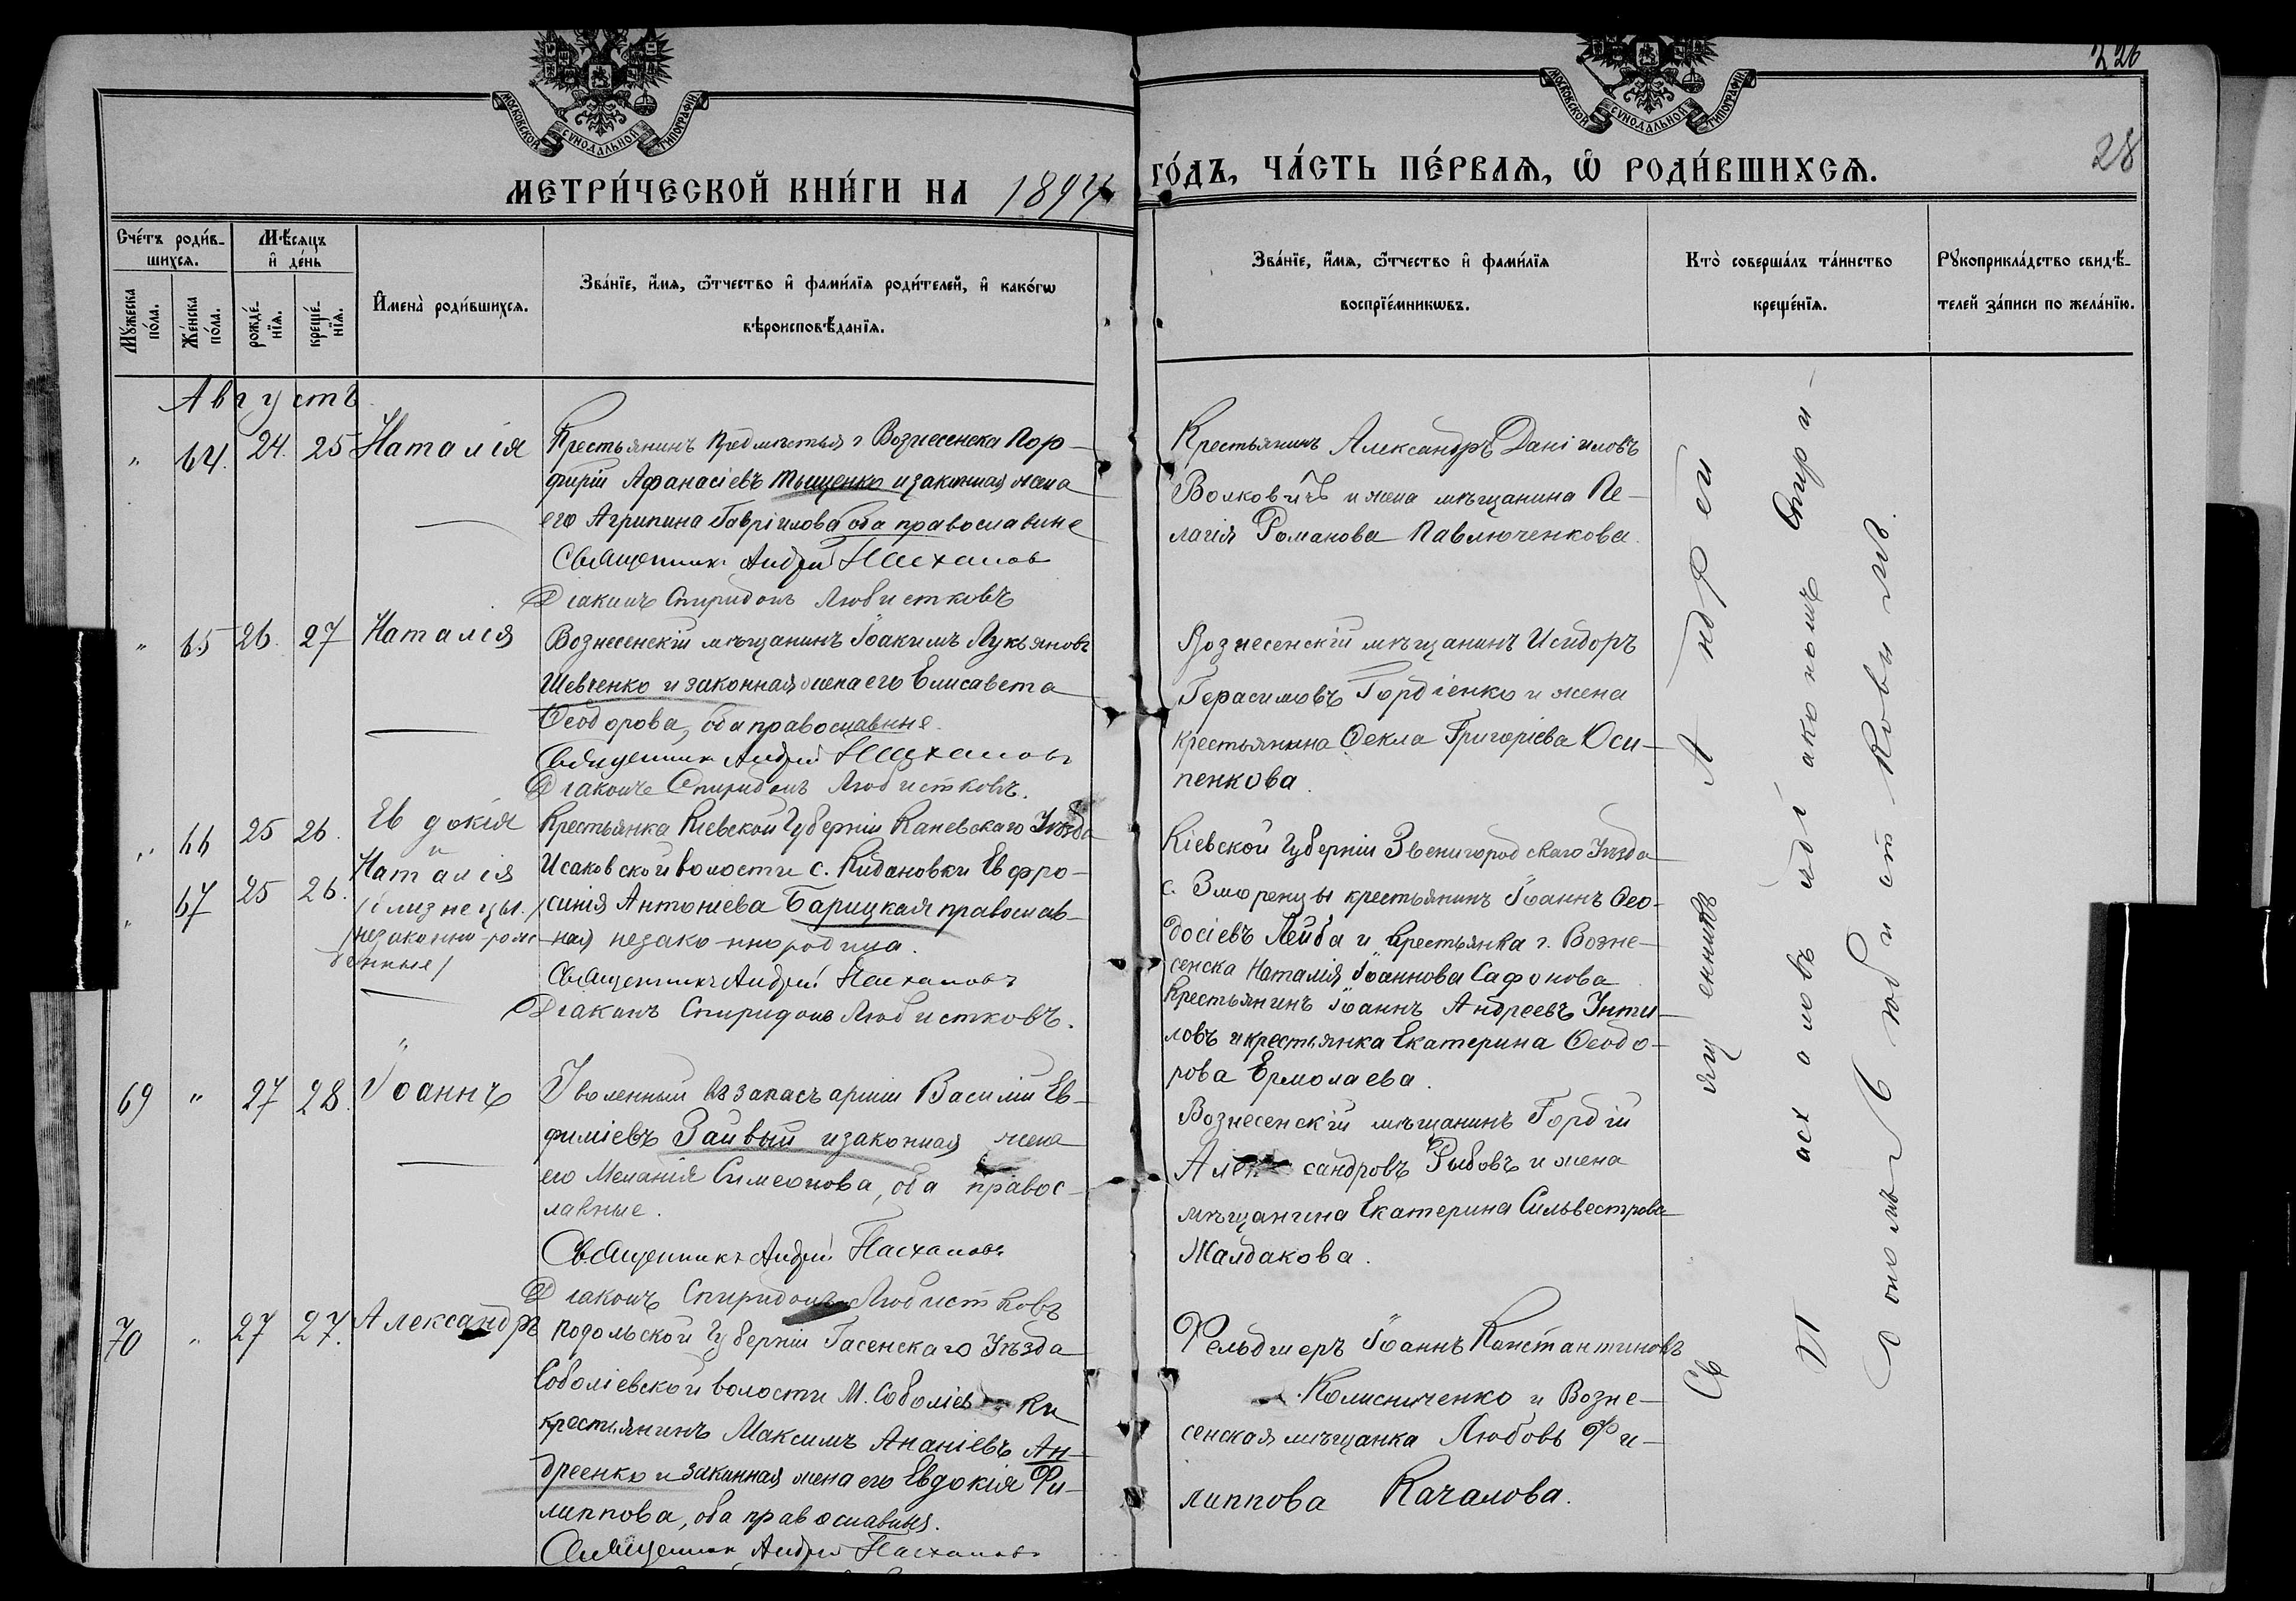 226
28
МОСКОВСКОЙ СѴНОДАЛЬНОЙ ТИПОГРАФІИ
МОСКОВСКОЙ СѴНОДАЛЬНОЙ ТИПОГРАФІИ
МЕТРИ́ЧЕСКОЙ КНИ́ГИ НА 1894
ГО́ДЪ, ЧА́СТЬ ПЕ́РВАѦ, Ѿ РОДИ́ВШИХСѦ.
Сче́тъ роди́в-
шихсѧ.
Мѣ́сяцъ
и҆ де́нь
Мꙋ́жеска
по́ла.
Же́нска
по́ла.
рожде́-
нїѧ.
креще́-
нїѧ.
И҆мена̀ роди́вшихсѧ.
Зва́нїе, и҆́мѧ, ѻ҆́тчество и҆ фами́лїѧ роди́телей, и҆ како́гѡ
вѣроисповѣ́данїѧ.
Зва́нїе, и҆́мѧ, ѻ҆́тчество и҆ фами́лїѧ
воспрїе́мникѡвъ.
Кто̀ соверша́лъ та́инство
креще́нїѧ.
Рꙋкоприкла́дство свидѣ́-
телей за́писи по жела́нїю.
Августъ
" 64. 24. 25 Наталія
Крестьянинъ предмѣстья г Вознесенска Пор-
фирій Афанасіевъ Тыщенко и законная жена
его Агрипина Гавріилова оба православные
Священникъ Андрей Пасхаловъ
Діаконъ Спиридонъ Любистковъ
Крестьянинъ Александръ Даніиловъ
Волковичъ и жена мѣщанина Пе-
лагія Романова Павлюченкова.
" 65 26. 27 Наталія
Вознесенскій мѣщанинъ Іоакимъ Лукьяновъ
Шевченко и законная жена его Елисавета
Ѳеодорова, оба православные.
Священникъ Андрей Пасхаловъ
Діаконъ Спиридонъ Любистковъ.
Вознесенскій мѣщанинъ Исидоръ
Герасимовъ Гордіенко и жена
крестьянина Ѳекла Григоріева Оси-
пенкова.
" 66 25 26. Евдокія
и
" 67 25 26. Наталія
/близнецы./
/незаконно-рож-
денные/
Крестьянка Кіевской Губерніи Каневскаго Уѣзда
Исаковской волости с. Кидановки Евфро-
синія Антоніева Барицкая православ-
ная незаконнородица.
Священникъ Андрей Пасхаловъ
Діаконъ Спиридонъ Любистковъ.
Кіевской Губерніи Звенигородскаго Уѣзда
с. Зморенцы крестьянинъ Іоаннъ Ѳео-
досіевъ Лейба и крестьянка г. Возне-
сенска Наталія Іоаннова Сафонова
Крестьянинъ Іоаннъ Андреевъ
ловъ и крестьянка Екатерина Ѳеодо-
рова Ермолаева.
69 " 27 28. Іоаннъ
Уволенный въ запасъ арміи Василій Ев-
фиміевъ Заивый и законная жена
его Меланія Симеонова, оба правос-
лавные.
Священникъ Андрей Пасхаловъ
Діаконъ Спиридонъ Любистковъ
Вознесенскій мѣщанинъ Гордій
Александровъ Рыбовъ и жена
мѣщанина Екатерина Сильвестрова
Жалдакова.
70 " 27 27. Александръ
Подольской Губерніи Гасенскаго Уѣзда
Соболіевской волости М. Соболіевки
крестьянинъ Максимъ Ананіевъ Ан-
дреенко и законная жена его Евдокія Фи-
липпова, оба православныя.
Священникъ Андрей Пасхаловъ
Фельдшеръ Іоаннъ Константиновъ
Колисниченко и Возне-
сенская мѣщанка Любовь Фи-
липпова Качалова.
Священникъ Андрей
Пасхаловъ и діакономъ Спири-
дономъ Любистковымъ.